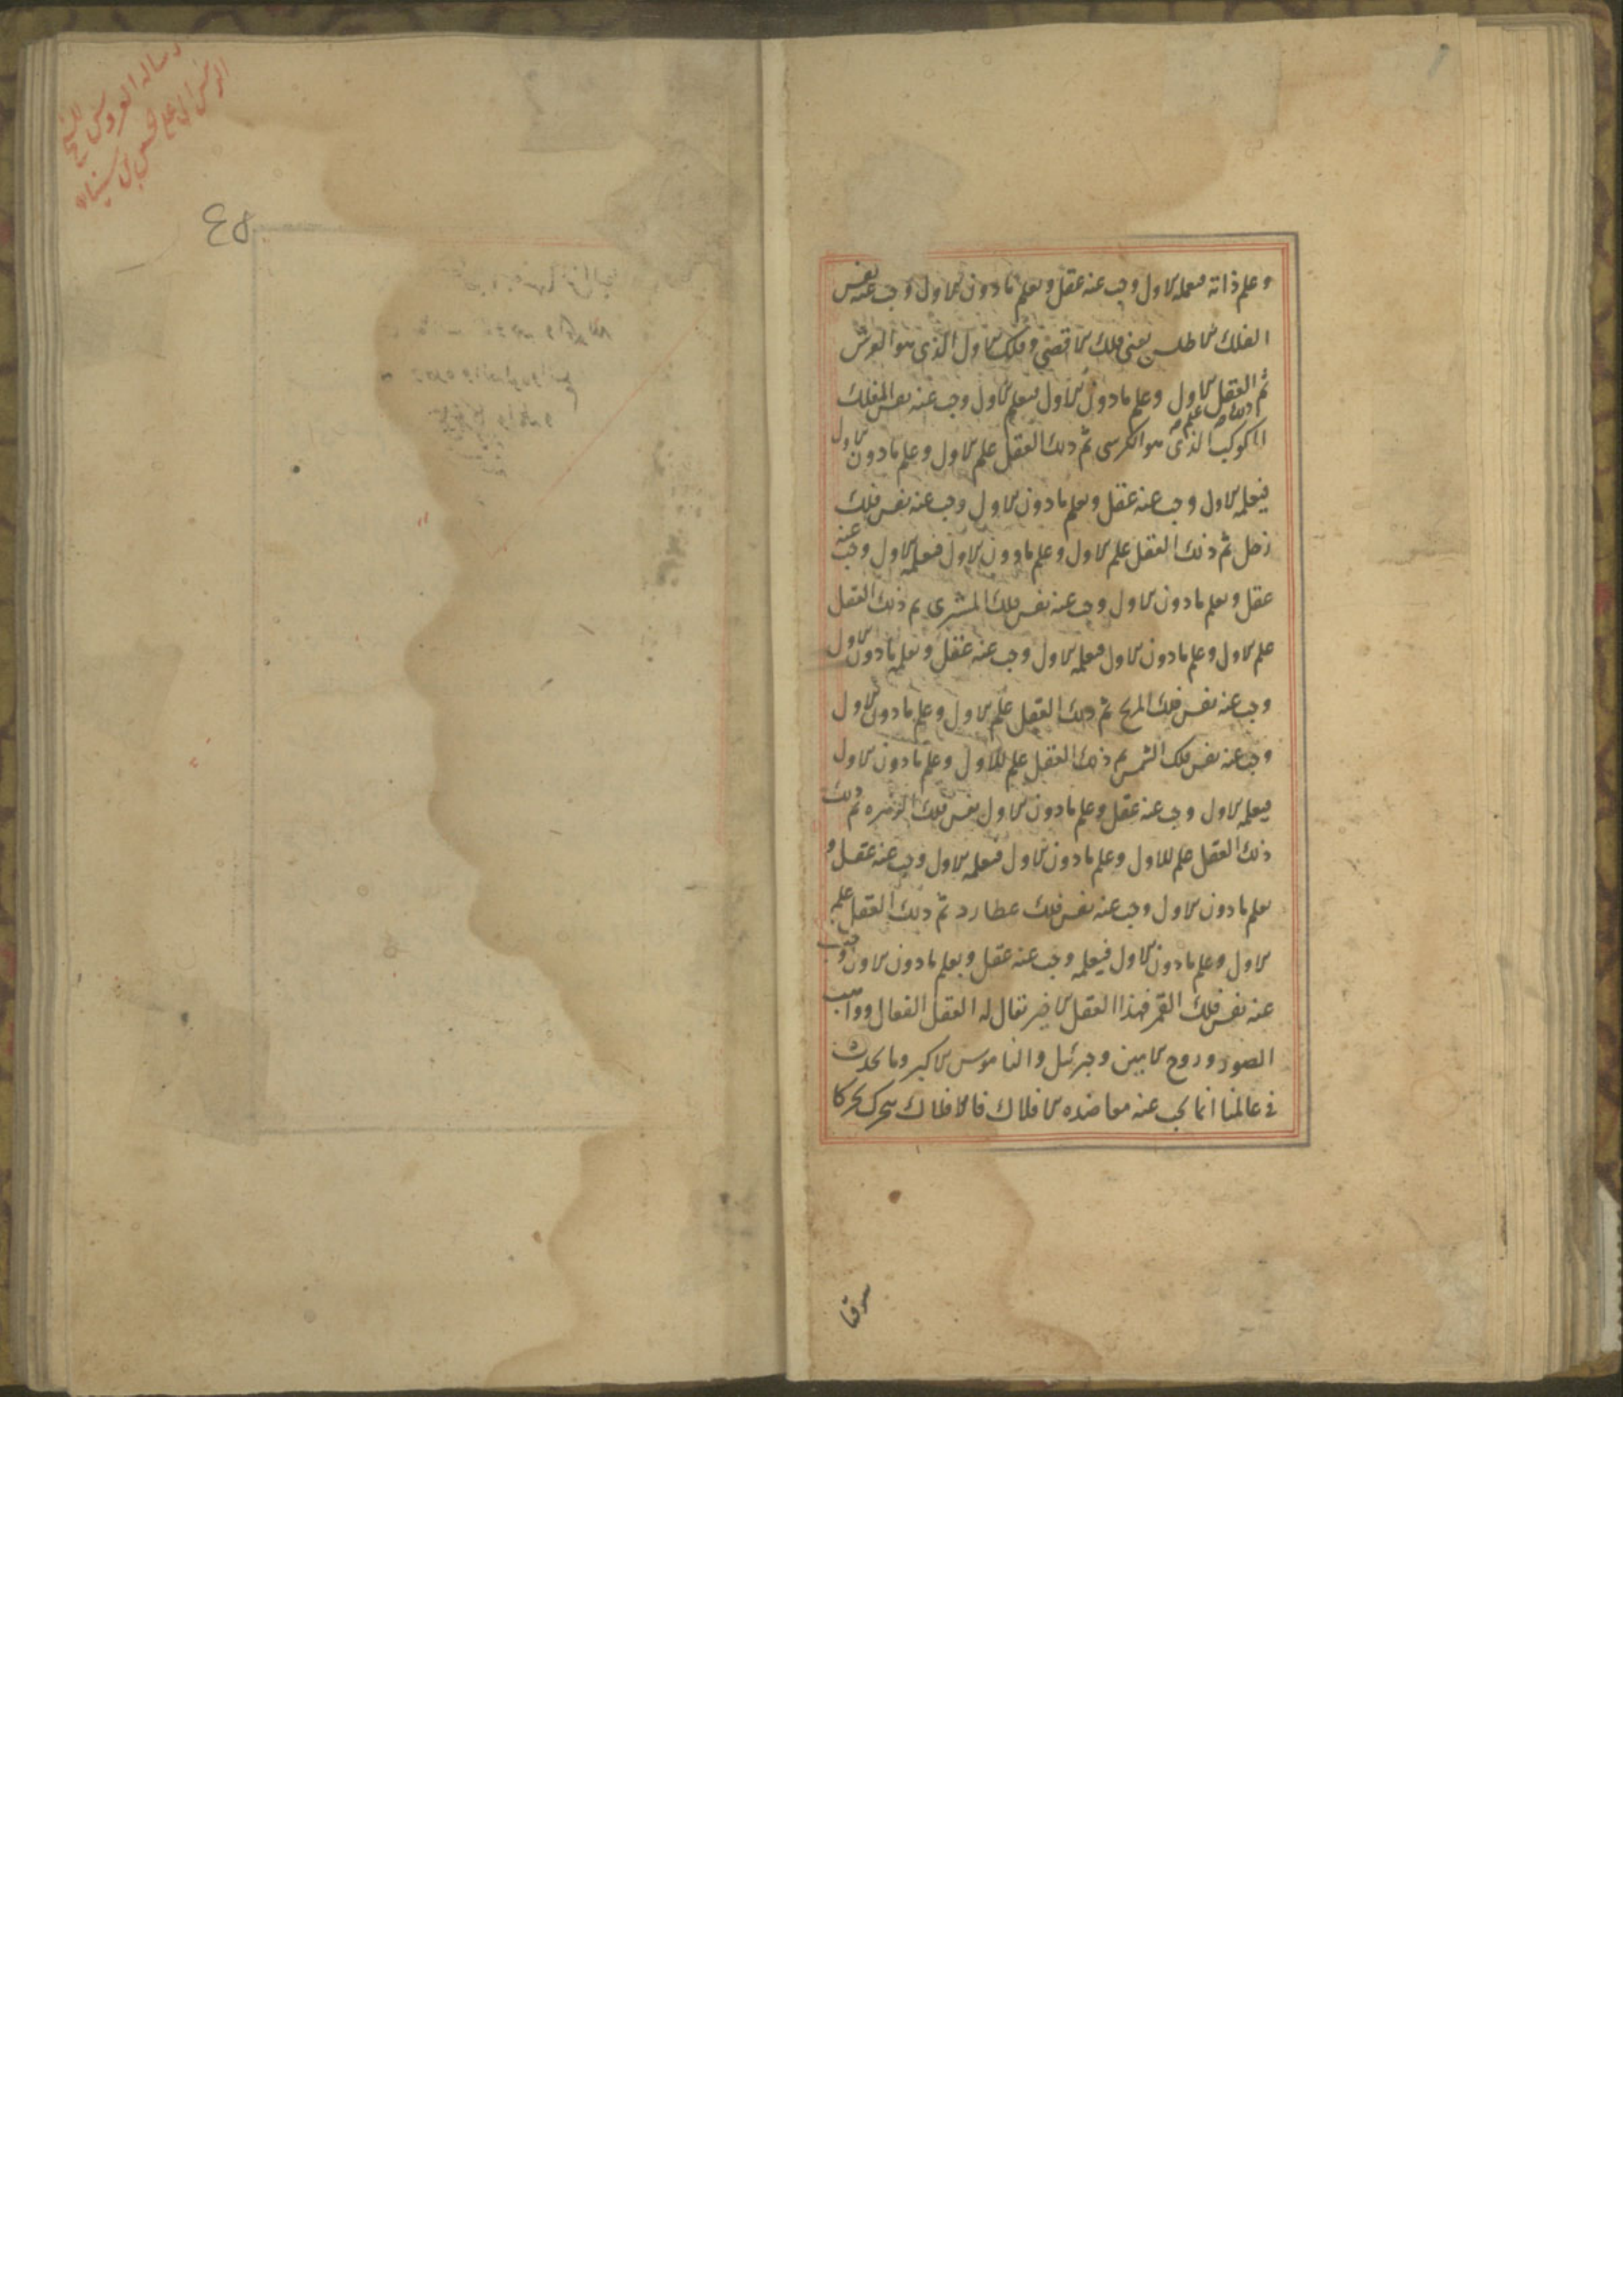 وعلم ذاته فبعلمه الاول وجب عنه عقل وبعلم مادون الاول وجب عنه نفس
الفلك الاطلس يعنى فلك الاقصى وفلك الاول الذى هو العرش
ثم العقل الاول وعلم مادون الاول فبعلم الاول وجب عنه نفس الفلك
المكوكب الذى هو الكرسى ثم ذلك العقل علم الاول وعلم مادون الاول
فبعلمه الاول وجب عنه عقل وبعلم مادون الاول وجب عنه نفس فلك
زحل ثم ذلك العقل علم الاول وعلم مادون الاول فبعلمه الاول وجب عنه
عقل وبعلم مادون الاول وجب عنه نفس فلك المشترى ثم ذلك العقل
علم الاول وعلم مادون الاول فبعلمه الاول وجب عنه عقل وبعلم مادون الاول
وجب عنه نفس فلك المريخ ثم ذلك العقل علم الاول وعلم مادون الاول
وجب عنه نفس فلك الشمس ثم ذلك العقل علم للاول وعلم مادون الاول
فبعلمه الاول وجب عنه عقل وعلم مادون الاول نفس فلك الزهره ثم ذلك
ذلك العقل علم للاول وعلم مادون الاول فبعلمه الاول وجب عنه عقل و
بعلم مادون الاول وجب عنه نفس فلك عطارد ثم ذلك العقل علم
الاول وعلم مادون الاول فبعلمه وجب عنه عقل وبعلم مادون الاول وجب
عنه نفس فلك القمر فهذا العقل الاخير يقال له العقل الفعال وواهب
الصور وروح الامين وجبرئيل والناموس الاكبر وما يحدث
فى عالمنا انما يجب عنه معاضده الافلاك فالافلاك يتحرك تحركا
رساله العروس للشيخ
الرئيس ابى على حسين بن سينا